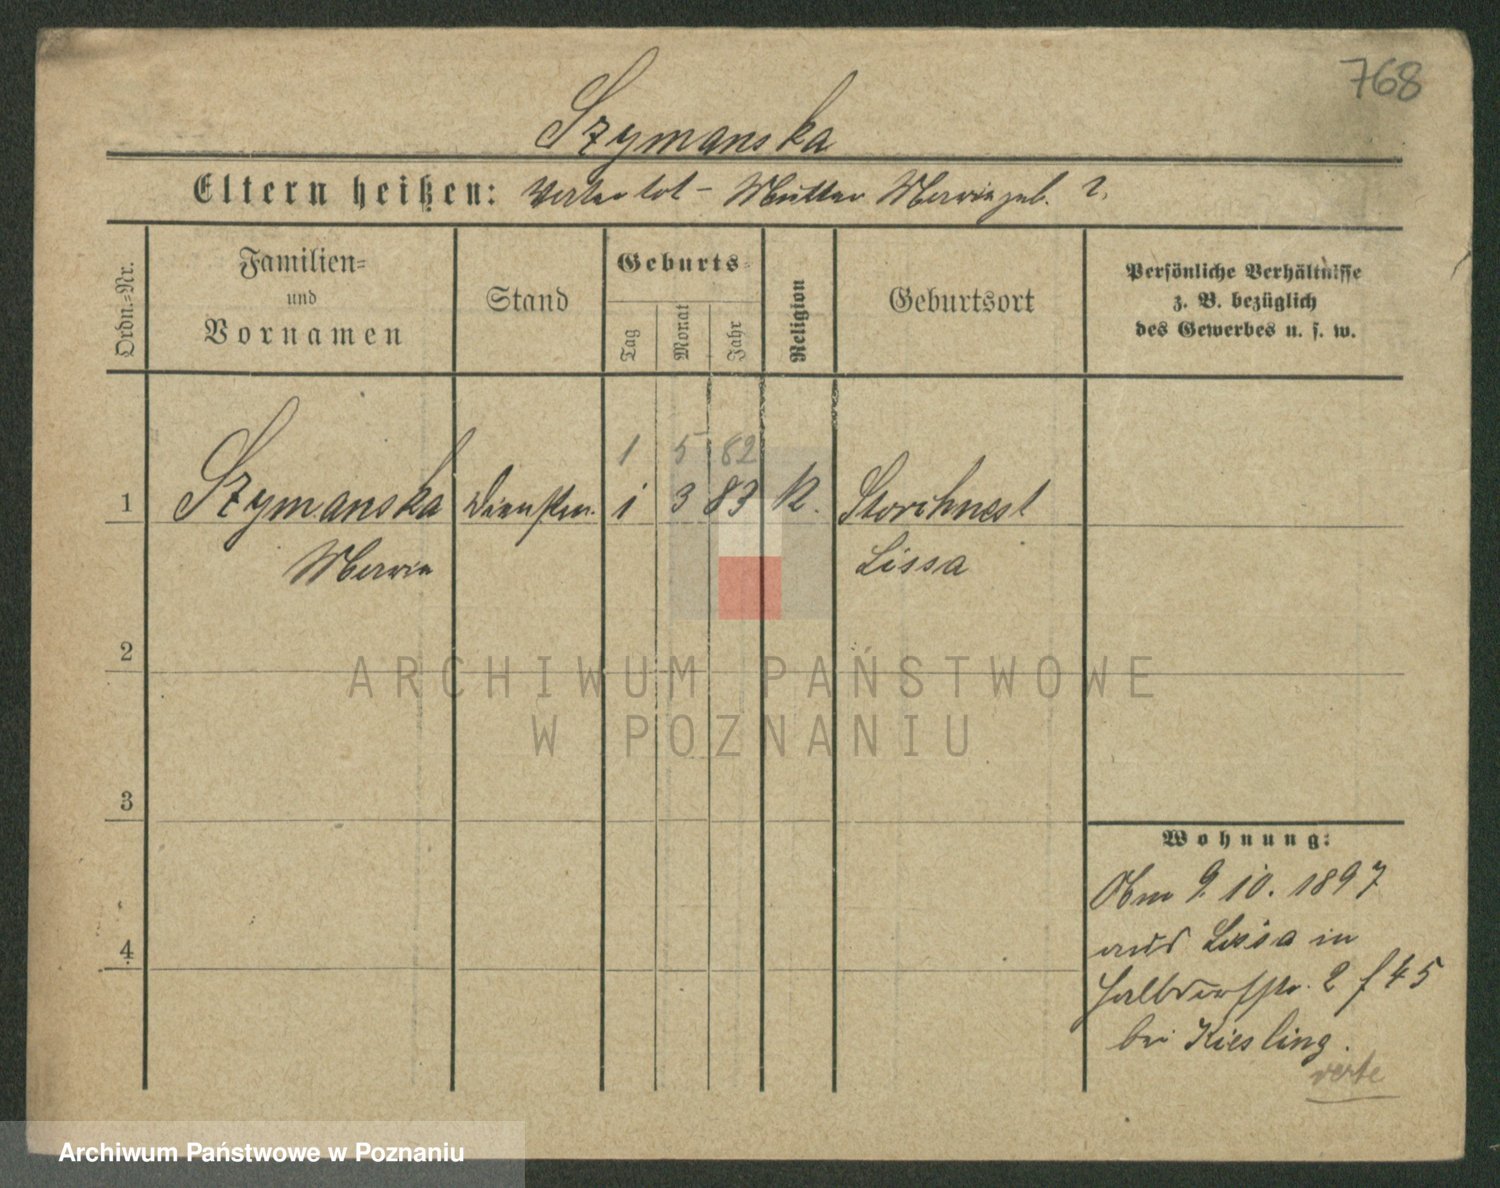 768
Szymanska
Eltern heißen: Vater tot - Mutter Marie geb. ?
Ordn.=Nr.
Familien=
und
Vornamen
Stand
Geburts=
Tag
Monat
Jahr
Religion
Geburtsort
Persönliche Verhältnisse
z. B. bezüglich
des Gewerbes u. s. w.
1 5 82
1 Szymanska 1 3 83 K. Storchnest
Marie Lissa
2
ARCHIWUM PAŃSTWOWE
W POZNANIU
3
Wohnung:
Am 9. 10. 1897
aus Lissa in
Halbdorfstr. 2 f 45
bei Kiesling.
verte
4
Archiwum Państwowe w Poznaniu